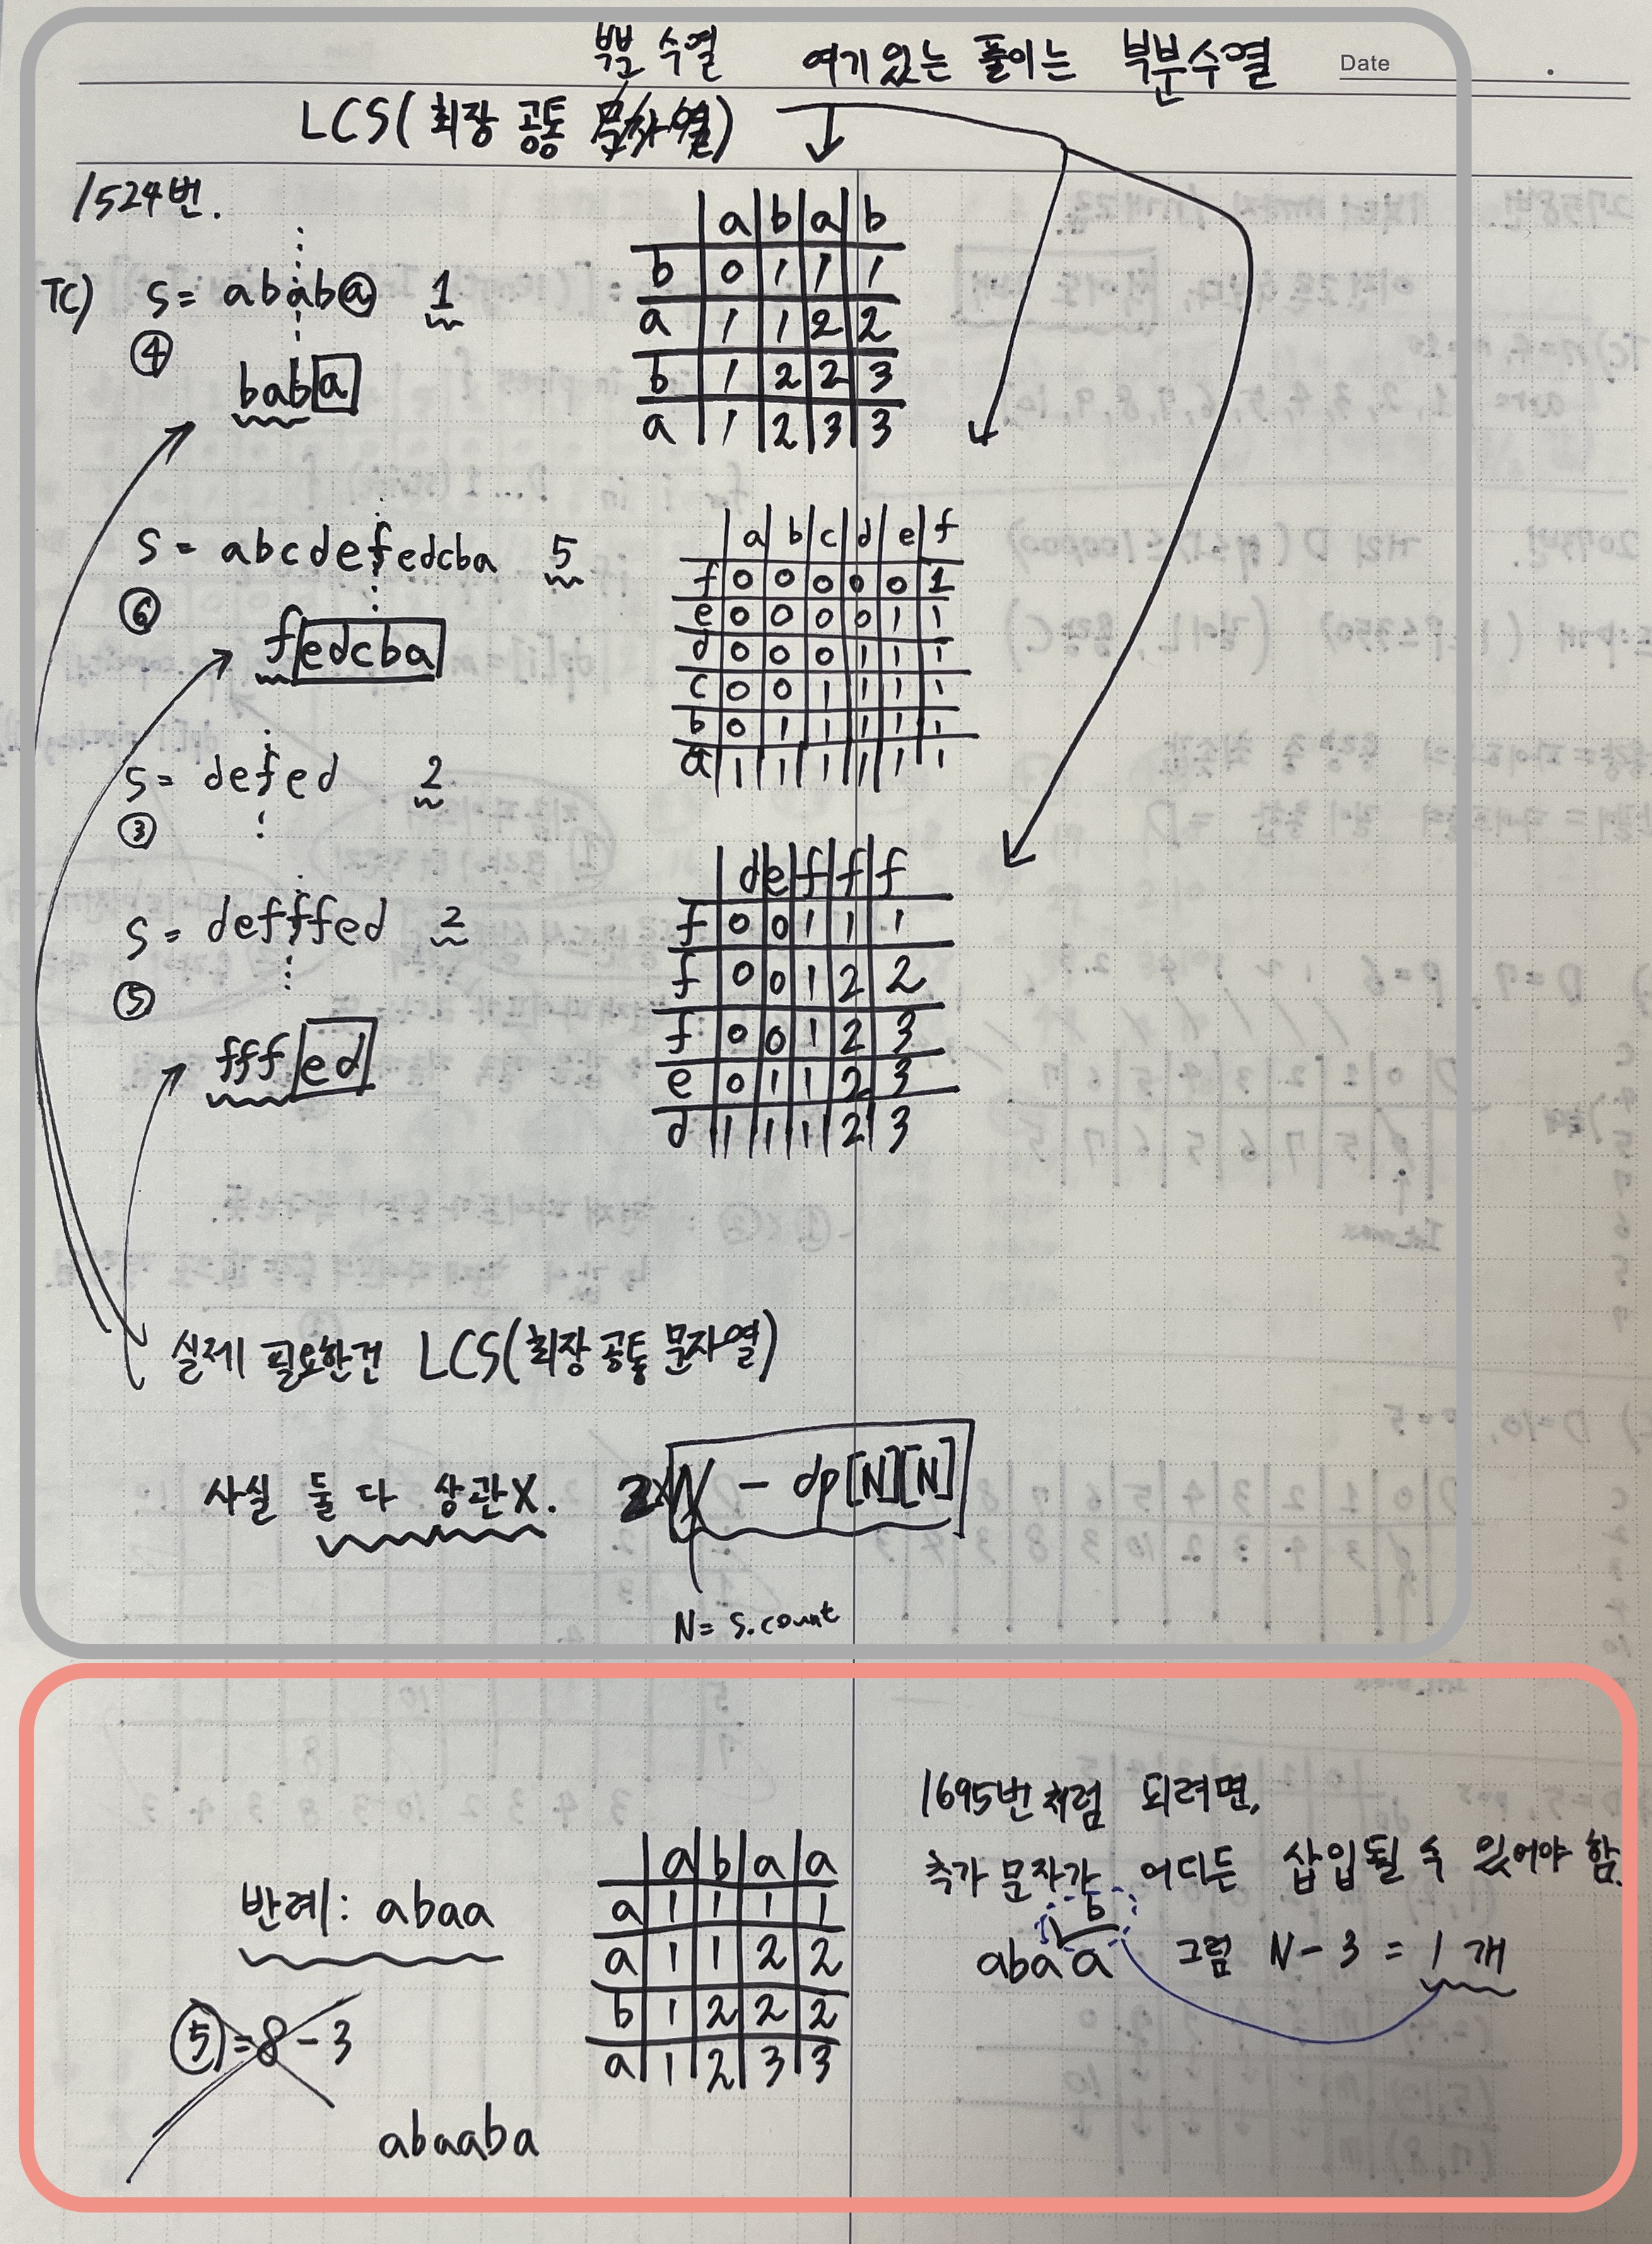 부분 수열 여기 있는 풀이는 부분수열 Date
LCS(최장 공통 문자열)
1524번.
TC) S= ababⓐ 1
④
baba
a b a b
b 0 1 1 1
a 1 1 2 2
b 1 2 2 3
a 1 2 3 3
S= abcdefedcba 5
⑥
fedcba
a b c d e f
f 0 0 0 0 0 1
e 0 0 0 0 1 1
d 0 0 0 1 1 1
c 0 0 1 1 1 1
b 0 1 1 1 1 1
a 1 1 1 1 1 1
S= defed 2
③
S= defffed 2
⑤
fffed
d e f f f
f 0 0 1 1 1
f 0 0 1 2 2
f 0 0 1 2 3
e 0 1 1 2 3
d 1 1 1 2 3
실제 필요한건 LCS(최장 공통 문자열)
사실 둘 다 상관X. 2×N - dp[N][N]
N= S.count
반례: abaa
⑤=8-3
abaaba
a b a a
a 1 1 1 1
a 1 1 2 2
b 1 2 2 2
a 1 2 3 3
1695번처럼 되려면,
추가 문자가 어디든 삽입될 수 있어야 함.
b
abaa 그럼 N-3 = 1개